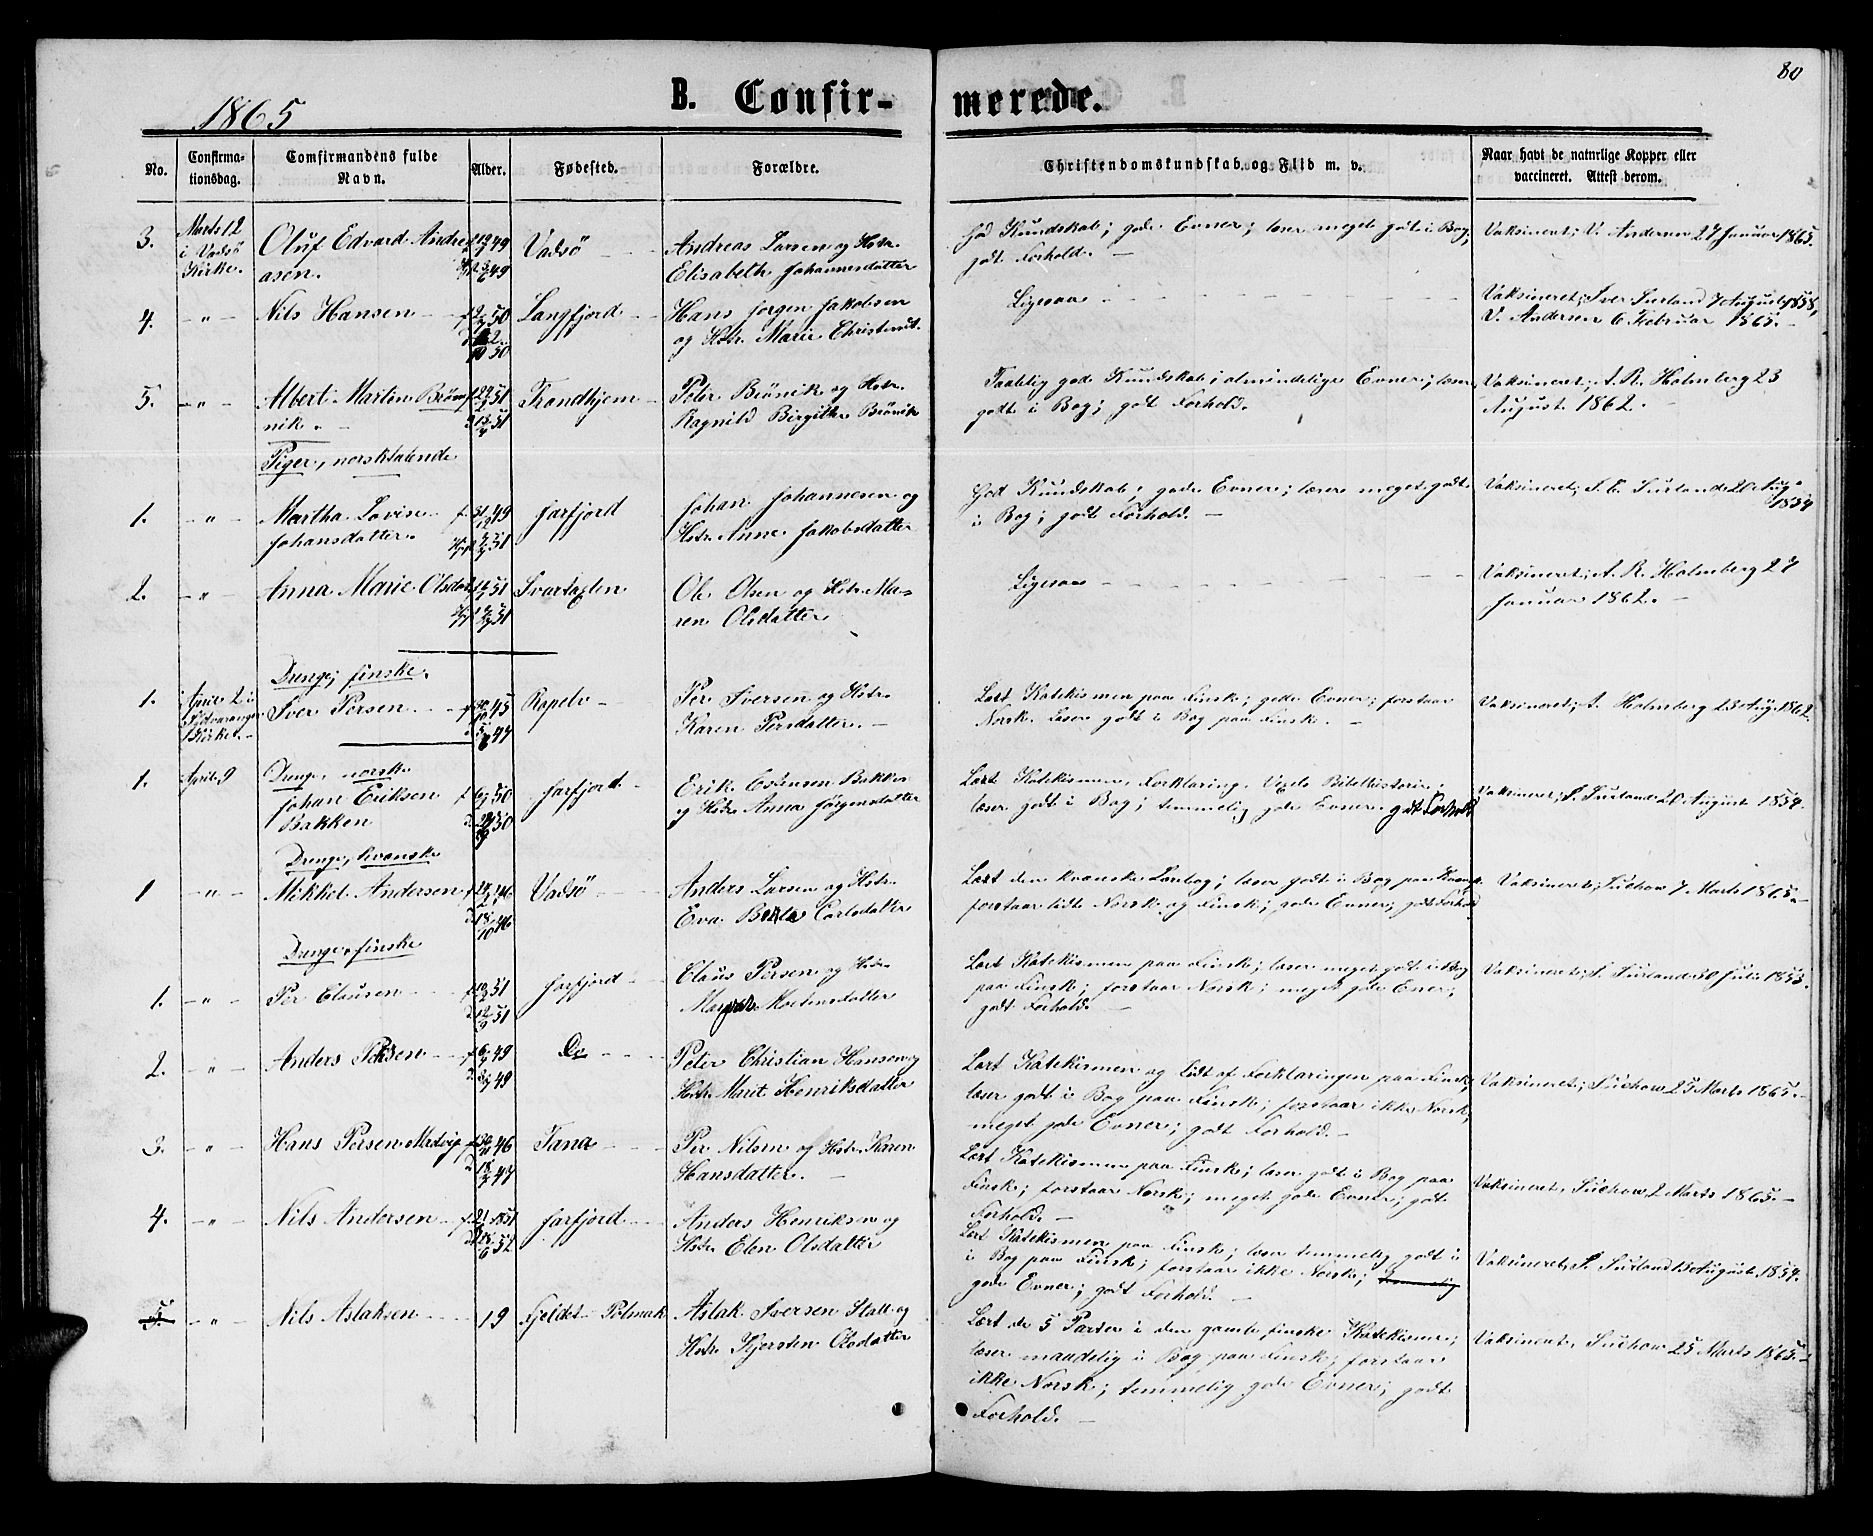 80
1865
B. Confir-
merede.
No.
Confirma-
tionsdag.
Comfirmandens fulde
Navn.
Alder.
Fødested.
Forældre.
Christendomskundskab og Flid m. v.
Naar havt de naturlige Kopper eller
vaccineret. Attest derom.
3.
Marts 12
i Vadsö
Kirke.
Oluf Edvard Andre
asen.
Vadsö
Andreas Larsen og Hstr.
Elisabeth Johannesdatter
God Kundskab; gode Evner; læser meget godt i Bog;
godt Forhold. —
Vaksineret; V. Andersen 27 Januar 1865.
4. - " - Nils Hansen
Langfjord
Hans Jørgen Jakobsen
og Hstr. Marie Christensd.
Ligesaa
Vaksineret; Iver Surland 7 August 1858,
V. Andersen 6 Februar 1865. -
5. - " - Albert Martin Brön
nik. -
Trondhjem
Peter Brönik og Hstr.
Ragnild Birgithe Brönik
Taalelig gode Kundskab; almindelige Evner; læser
godt i Bog; godt Forhold.
Vaksineret; A. R. Holmberg 23
August 1862. -
Piger, norsktalende
1. - " - Martha Lovise
Johansdatter.
Jarfjord
Johan Johannesen og
Hstr. Anne Jakobsdatter
God Kundskab; gode Evner; læser meget godt
i Bog; godt Forhold. -
Vaksineret; S. Surland 20 Aug.
1854
2. - " - Anna Marie Olsdat.
Svartaxlen
Ole Olsen og Hstr. Ma-
ren Olsdatter
Ligesaa
Vaksineret; A. R. Holmberg 27
Januar 1862. -
Drenge, finske.
1. April 2 i
Sydvaranger
Kirke. -
Iver Persen
Ropelv -
Per Iversen og Hstr.
Karen Persdatter. -
Lært Katekismen paa Finsk; gode Evner; forstaar
Norsk. Læser godt i Bog paa Finsk. -
Vaksineret; A. Holmberg 23 Aug. 1862.
Drenge, norske
1. April 9
Johan Eriksen
Bakken
Jarfjord
Erik Estensen Bakken
og Hstr. Anna Jörgensdatter
Lært Katekismen, Forklaring, Vogts Bibelhistorie;
læser godt i Bog; temmelig gode Evner. godt Forhold
Vaksineret; S. Surland 20 August 1854.
Drenge, kvænske
1 - " - Mikkel Andersen
Vadsö
Anders Larsen og Hstr.
Eva Carlsdatter
Lært den kvænske Lærebog; læser godt i Bog paa Kvænsk
forstaar lidt Norsk og Finsk; gode Evner; godt Forhold
Vaksineret; Suchow 7 Marts 1865. -
Drenge, finske
1. - " - Per Clausen
Jarfjord
Claus Persen og Hstr.
Mortensdatter
Lært Katekismen paa Finsk; læser meget godt i Bog
paa Finsk; forstaar Norsk; meget gode Evner;
godt Forhold. -
Vaksineret; S. Surland 30 Juli 1853.
2. - " - Anders
Do
Peter Christian Hansen og
Hstr. Marit Henriksdatter
Lært Katekismen og Lidt af Forklaringen paa Finsk;
læser godt i Bog paa Finsk; forstaar ikke Norsk;
meget gode Evner; godt Forhold. -
Vaksineret; Suchow 25 Marts 1865. -
3. - " - Hans Persen Madvig
Tana
Per Nilsen og Hstr. Karen
Hansdatter. -
Lært Katekismen paa Finsk; læser godt i Bog paa
Finsk; forstaar Norsk; meget gode Evner; godt
Forhold. -
Vaksineret, Suchow 2 Marts 1865. -
4. - " - Nils Andersen
Jarfjord
Anders Henriksen og
Hstr. Elen Olsdatter
Lært Katekismen paa Finsk; læser temmelig godt i
i Bog paa Finsk; forstaar ikke Norsk; temmelig
gode Evner; godt Forhold. -
Vaksineret; S. Surland 13 August 1854.
5. - " - Nils Aslaksen
19
Fjeldet Polmak
Aslak Iversen Stall og
Hstr. Kjersten Olsdatter
Lært de 5 Parter i den gamle finske Katekisme;
læser maadelig i Bog paa Finsk; forstaar
ikke Norsk; temmelig gode Evner; godt
Forhold. -
Vaksineret, Suchow 25 Marts 1865. -